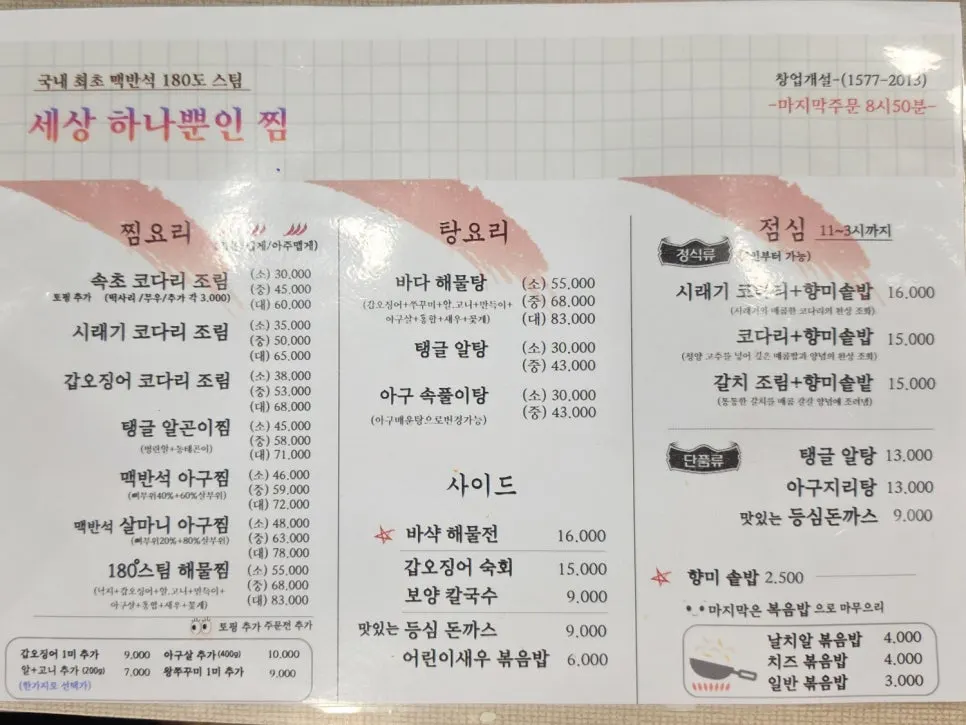 국내 최초 맥반석 180도 스팀
세상 하나뿐인 찜
창업개설-(1577-2013)
-마지막주문 8시50분-
찜요리
/아주맵게)
속초 코다리 조림 (소) 30,000
토핑 추가 (떡사리/무우/추가 각 3,000) (중) 45,000
(대) 60,000
시래기 코다리 조림 (소) 35,000
(중) 50,000
(대) 65,000
갑오징어 코다리 조림 (소) 38,000
(중) 53,000
(대) 68,000
탱글 알곤이찜 (소) 45,000
(명란알+동태곤이) (중) 58,000
(대) 71,000
맥반석 아구찜 (소) 46,000
(뼈부위40%+60%살부위) (중) 59,000
(대) 72,000
맥반석 살마니 아구찜 (소) 48,000
(뼈부위20%+80%살부위) (중) 63,000
(대) 78,000
180°스팀 해물찜 (소) 55,000
(낙지+갑오징어+알.고니+만득이+ (중) 68,000
아구살+통합+새우+꽃게) (대) 83,000
토핑 추가 주문전 추가
갑오징어 1미 추가 9,000 아구살 추가 (400g) 10,000
알+고니 추가 (200g) 7,000 왕쭈꾸미 1미 추가 9,000
(한가지로 선택가)
탕요리
바다 해물탕 (소) 55,000
(갑오징어+쭈꾸미+알.고니+만득이+ (중) 68,000
아구살+통합+새우+꽃게) (대) 83,000
탱글 알탕 (소) 30,000
(중) 43,000
아구 속풀이탕 (소) 30,000
(아구매운탕으로변경가능) (중) 43,000
사이드
바샥 해물전 16,000
갑오징어 숙회 15,000
보양 칼국수 9,000
맛있는 등심 돈까스 9,000
어린이새우 볶음밥 6,000
점심 11~3시까지
정식류 부터 가능)
시래기 코다리+향미솥밥 16,000
(시래기와 매콤한 코다리의 환성 조화)
코다리+향미솥밥 15,000
(청양 고추를 넣어 깊은 매콤함과 양념의 환성 조화)
갈치 조림+향미솥밥 15,000
(통통한 갈치를 매콤 칼칼 양념에 조려냄)
단품류
탱글 알탕 13,000
아구지리탕 13,000
맛있는 등심돈까스 9,000
향미 솥밥 2.500
마지막은 볶음밥 으로 마무으리
날치알 볶음밥 4,000
치즈 볶음밥 4,000
일반 볶음밥 3,000